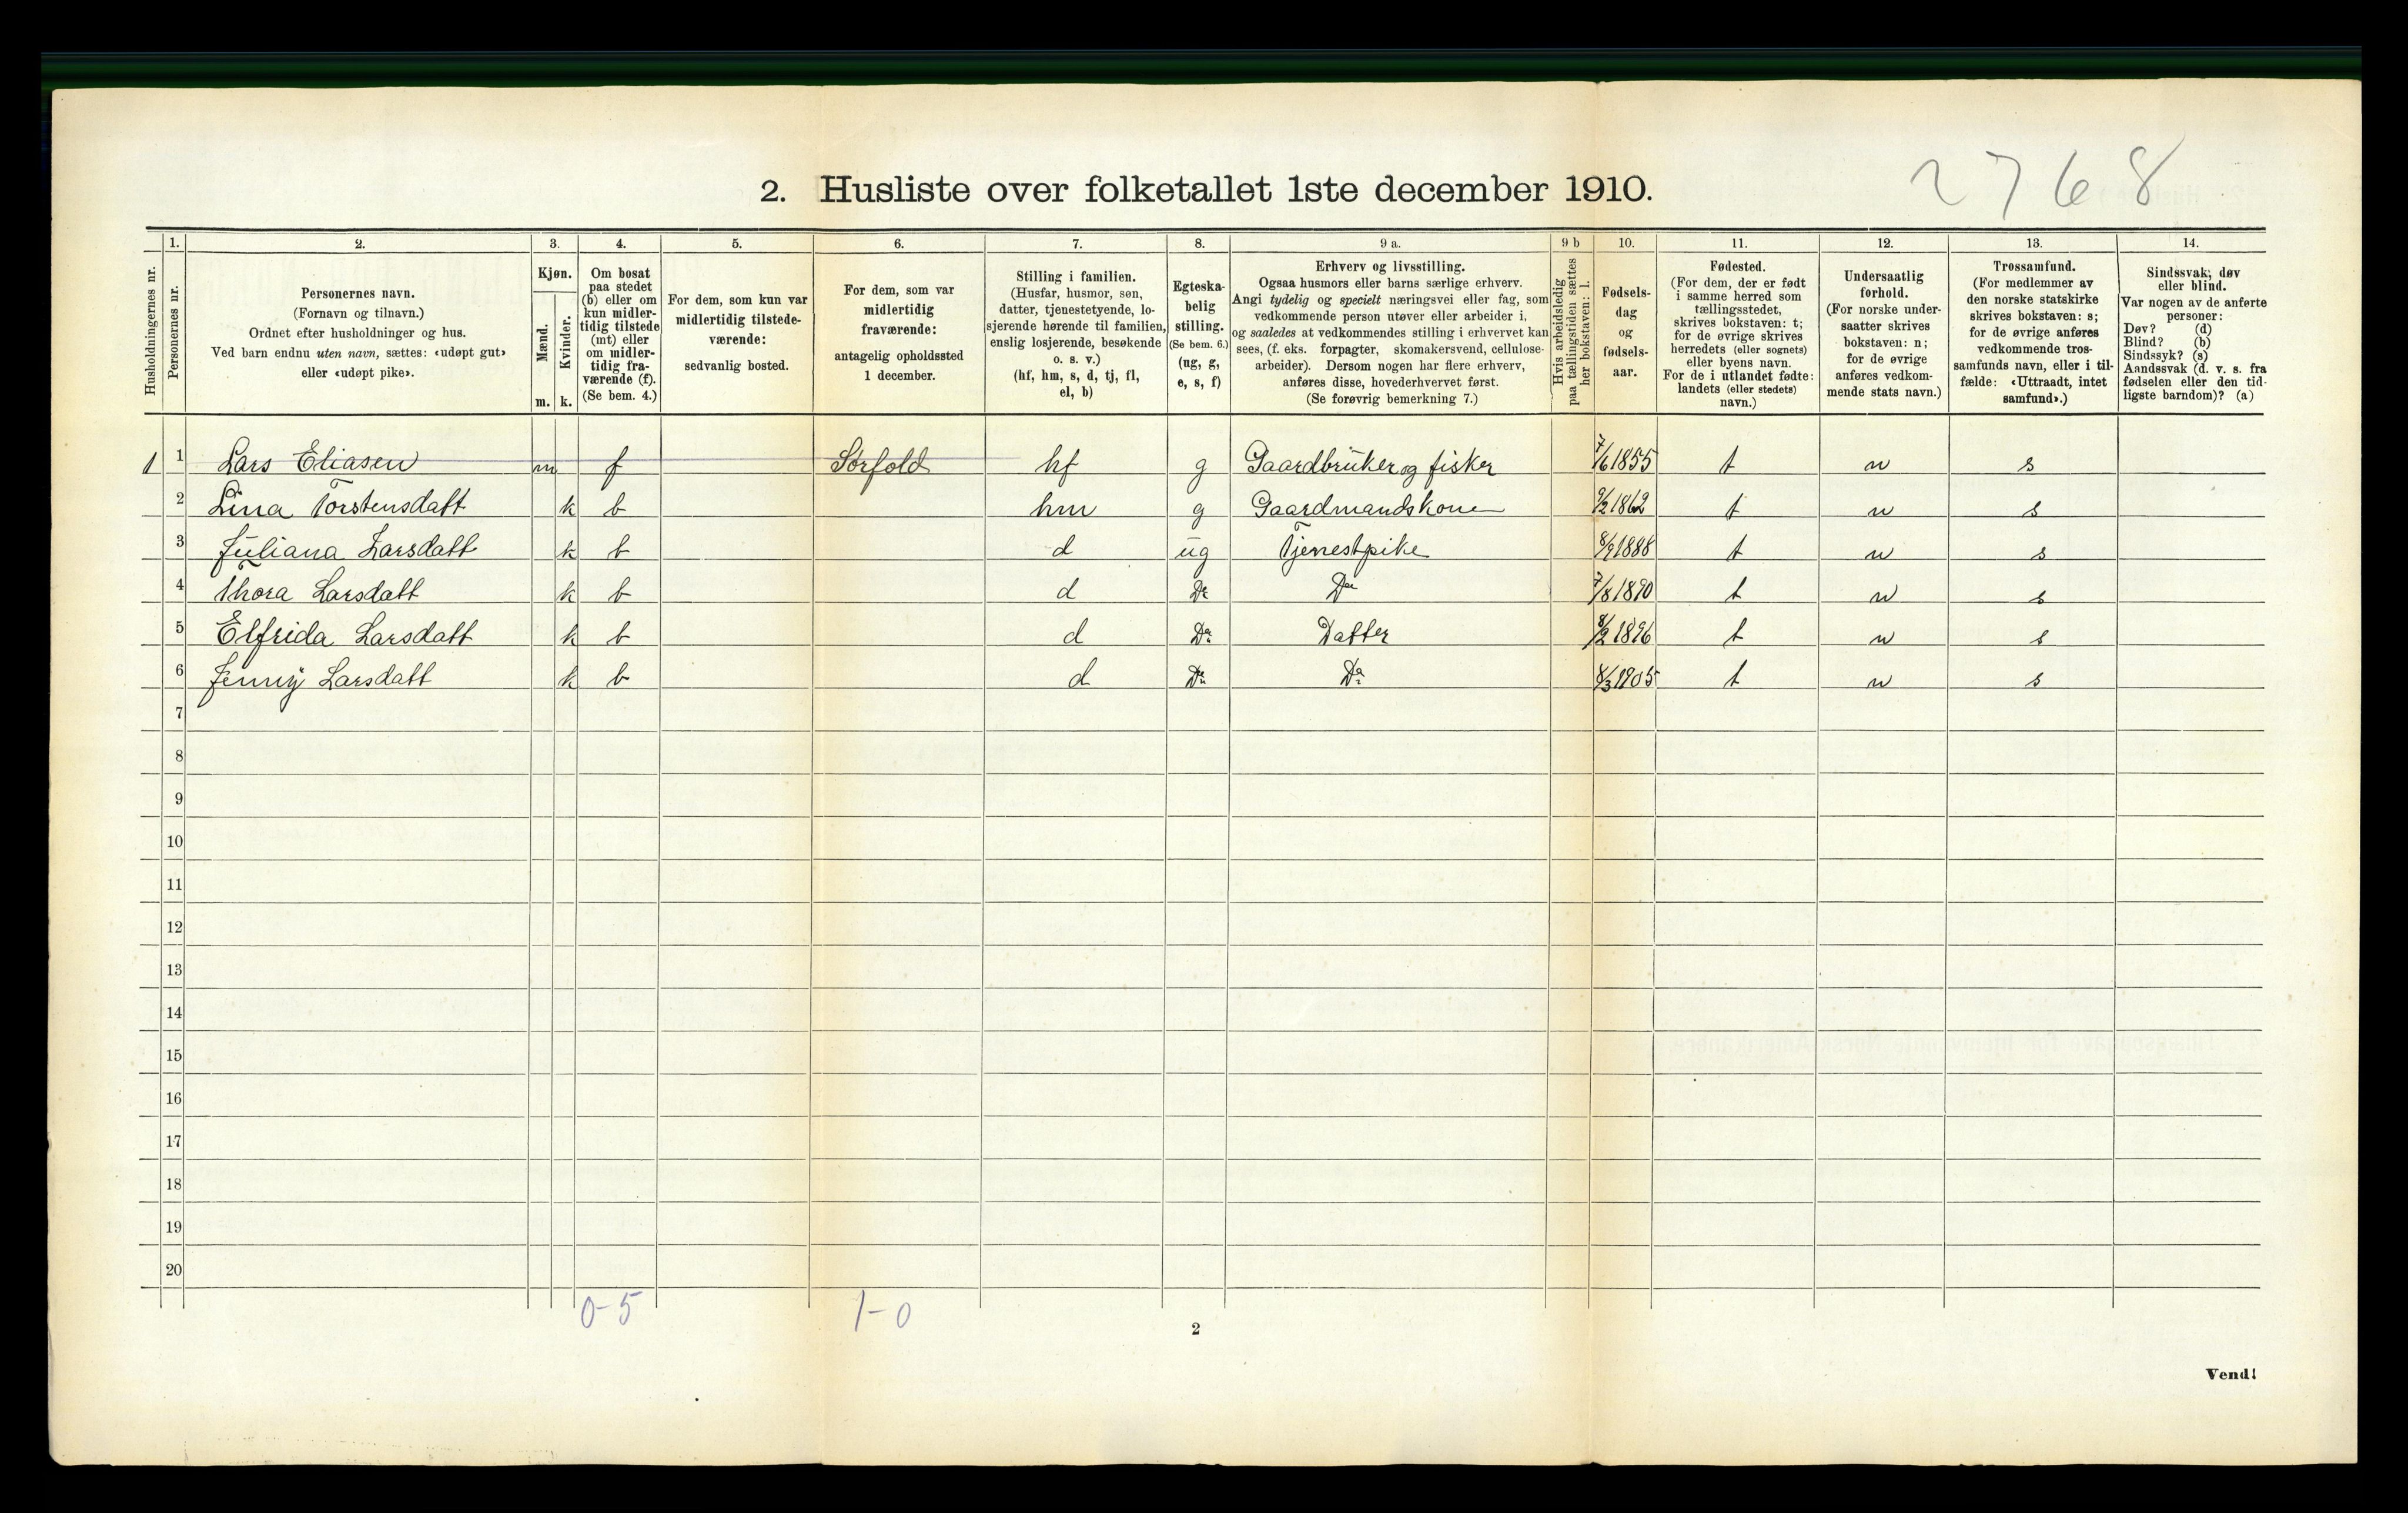 2768
2. Husliste over folketallet 1ste december 1910.
1. 2. 3. 4. 5. 6. 7. 8. 9 a. 9 b 10. 11. 12. 13. 14.
Husholdningernes nr.
Personernes nr.
Personernes navn.
(Fornavn og tilnavn.)
Ordnet efter husholdninger og hus.
Ved barn endnu uten navn, sættes: «udøpt gut»
eller «udøpt pike».
Kjøn.
Mænd.
Kvinder.
m. k.
Om bosat
paa stedet
(b) eller om
kun midler-
tidig tilstede
(mt) eller
om midler-
tidig fra-
værende (f).
(Se bem. 4.)
For dem, som kun var
midlertidig tilstede-
værende:
sedvanlig bosted.
For dem, som var
midlertidig
fraværende:
antagelig opholdssted
1 december.
Stilling i familien.
(Husfar, husmor, søn,
datter, tjenestetyende, lo-
sjerende hørende til familien,
enslig losjerende, besøkende
o. s. v.)
(hf, hm, s, d, tj, fl,
el, b)
Egteska-
belig
stilling.
(Se bem. 6.)
(ug, g,
e, s, f)
Erhverv og livsstilling.
Ogsaa husmors eller barns særlige erhverv.
Angi tydelig og specielt næringsvei eller fag, som
vedkommende person utøver eller arbeider i,
og saaledes at vedkommendes stilling i erhvervet kan
sees, (f. eks. forpagter, skomakersvend, cellulose-
arbeider). Dersom nogen har flere erhverv,
anføres disse, hovederhvervet først.
(Se forøvrig bemerkning 7.)
Hvis arbeidsledig
paa tællingstiden sættes
her bokstaven: l.
Fødsels-
dag
og
fødsels-
aar.
Fødested.
(For dem, der er født
i samme herred som
tællingsstedet,
skrives bokstaven: t;
for de øvrige skrives
herredets (eller sognets)
eller byens navn.
For de i utlandet fødte:
landets (eller stedets)
navn.)
Undersaatlig
forhold.
(For norske under-
saatter skrives
bokstaven: n;
for de øvrige
anføres vedkom-
mende stats navn.)
Trossamfund.
(For medlemmer av
den norske statskirke
skrives bokstaven: s;
for de øvrige anføres
vedkommende tros-
samfunds navn, eller i til-
fælde: «Uttraadt, intet
samfund».)
Sindssvak, døv
eller blind.
Var nogen av de anførte
personer:
Døv? (d)
Blind? (b)
Sindssyk? (s)
Aandssvak (d. v. s. fra
fødselen eller den tid-
ligste barndom)? (a)
1 1 Lars Eliasen m f Sørfold hf g Gaardbruker og fisker 7/6 1855 t n s
2 Lina Torstensdatt k b hm g Gaardmandskone 9/2 1862 t n s
3 Juliana Larsdatt k b d ug Tjenestpike 8/9 1888 t n s
4 Thora Larsdatt k b d Do Do 7/8 1890 t n s
5 Elfrida Larsdatt k b d Do Datter 8/2 1896 t n s
6 Jenny Larsdatt k b d Do Do 8/3 1905 t n s
7
8
9
10
11
12
13
14
15
16
17
18
19
20
0-5 1-0
2
Vend!